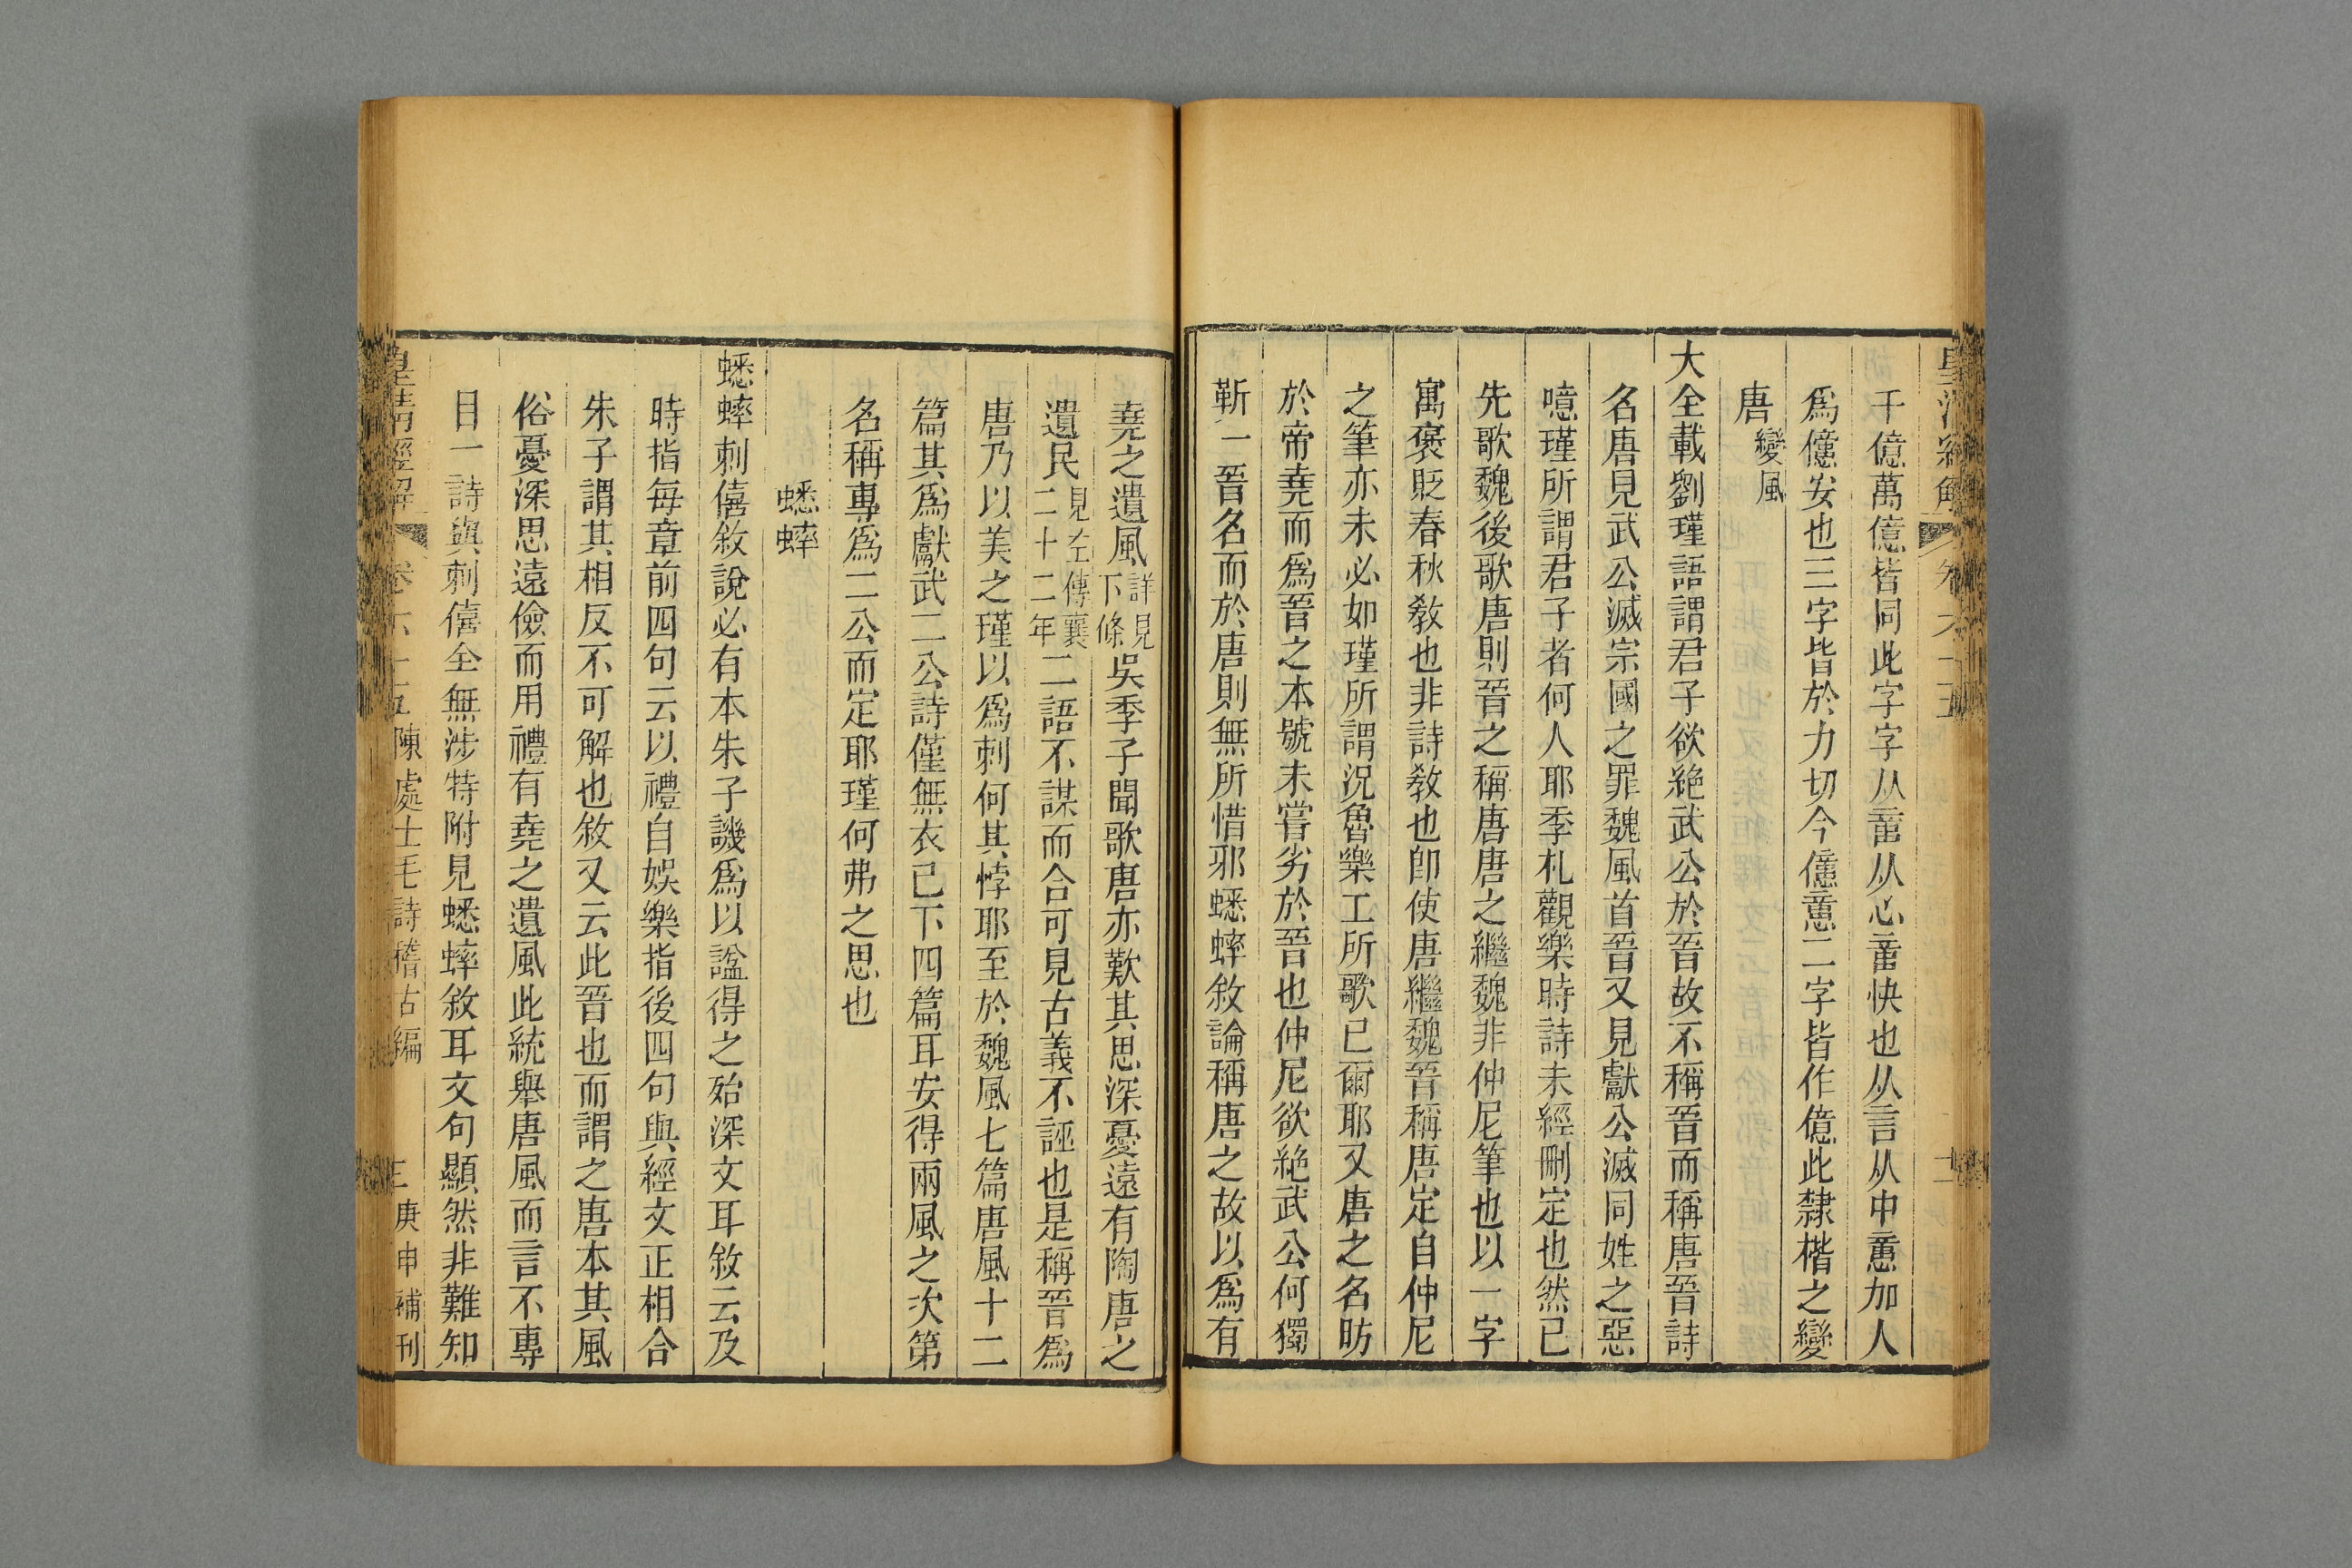 千億萬億皆同此字字从䇂从心䇂快也从言从中意加人
爲億安也三字皆於力切今億意二字皆作億此隸楷之變
唐變風
大全載劉瑾語謂君子欲絶武公於晉故不稱晉而稱唐晉詩
名唐見武公滅宗國之罪魏風首晉又見獻公滅同姓之惡
噫瑾所謂君子者何人耶季札觀樂時詩未經刪定也然已
先歌魏後歌唐則晉之稱唐唐之繼魏非仲尼筆也以一字
寓褒貶春秋敎也非詩敎也卽使唐繼魏晉稱唐定自仲尼
之筆亦未必如瑾所謂況魯樂工所歌已爾耶又唐之名昉
於帝堯而爲晉之本號未嘗劣於晉也仲尼欲絶武公何獨
靳一晉名而於唐則無所惜邪蟋蟀敘論稱唐之故以爲有
堯之遺風詳見下條吳季子聞歌唐亦歎其思深憂遠有陶唐之
遺民見左傳襄二十二年二語不謀而合可見古義不誣也是稱晉爲
唐乃以美之瑾以爲刺何其悖耶至於魏風七篇唐風十二
篇其爲獻武二公詩僅無衣已下四篇耳安得兩風之次第
名稱專爲二公而定耶瑾何弗之思也
蟋蟀
蟋蟀刺僖敘說必有本朱子譏爲以諡得之殆深文耳敘云及
時指每章前四句云以禮自娛樂指後四句與經文正相合
朱子謂其相反不可解也敘又云此晉也而謂之唐本其風
俗憂深思遠儉而用禮有堯之遺風此統舉唐風而言不專
目一詩與刺僖全無涉特附見蟋蟀敘耳文句顯然非難知
皇清經解 卷六十五 陳處士毛詩稽古編 三 庚申補刊